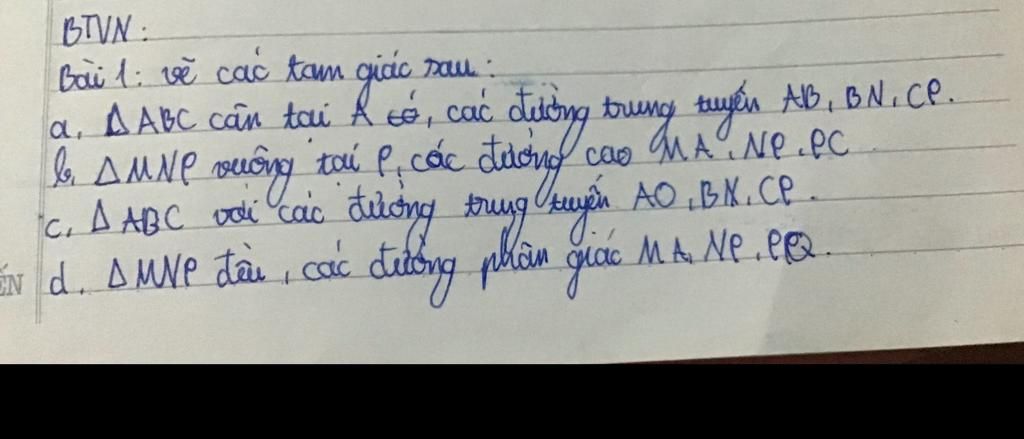 BTVN:
Bài 1: vẽ các tam giác sau:
a, Δ ABC cân tại A có, các đường trung tuyến AB, BN, CP.
b, Δ MNP vuông tại P, các đường cao MA, NP, PC
c, Δ ABC với các đường trung tuyến AO, BN, CP.
d. Δ MNP đều, các đường phân giác MA, NP, PQ.